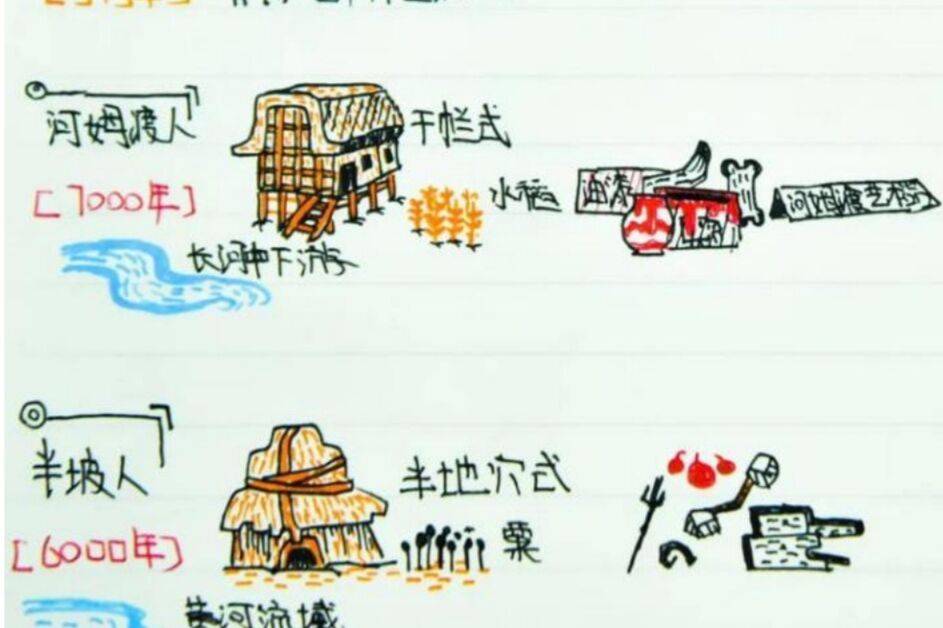 河姆渡人
干栏式
[7000年]
水稻
油漆
河姆渡艺
长河中下游
半坡人
半地穴式
[6000年]
粟
黄河流域